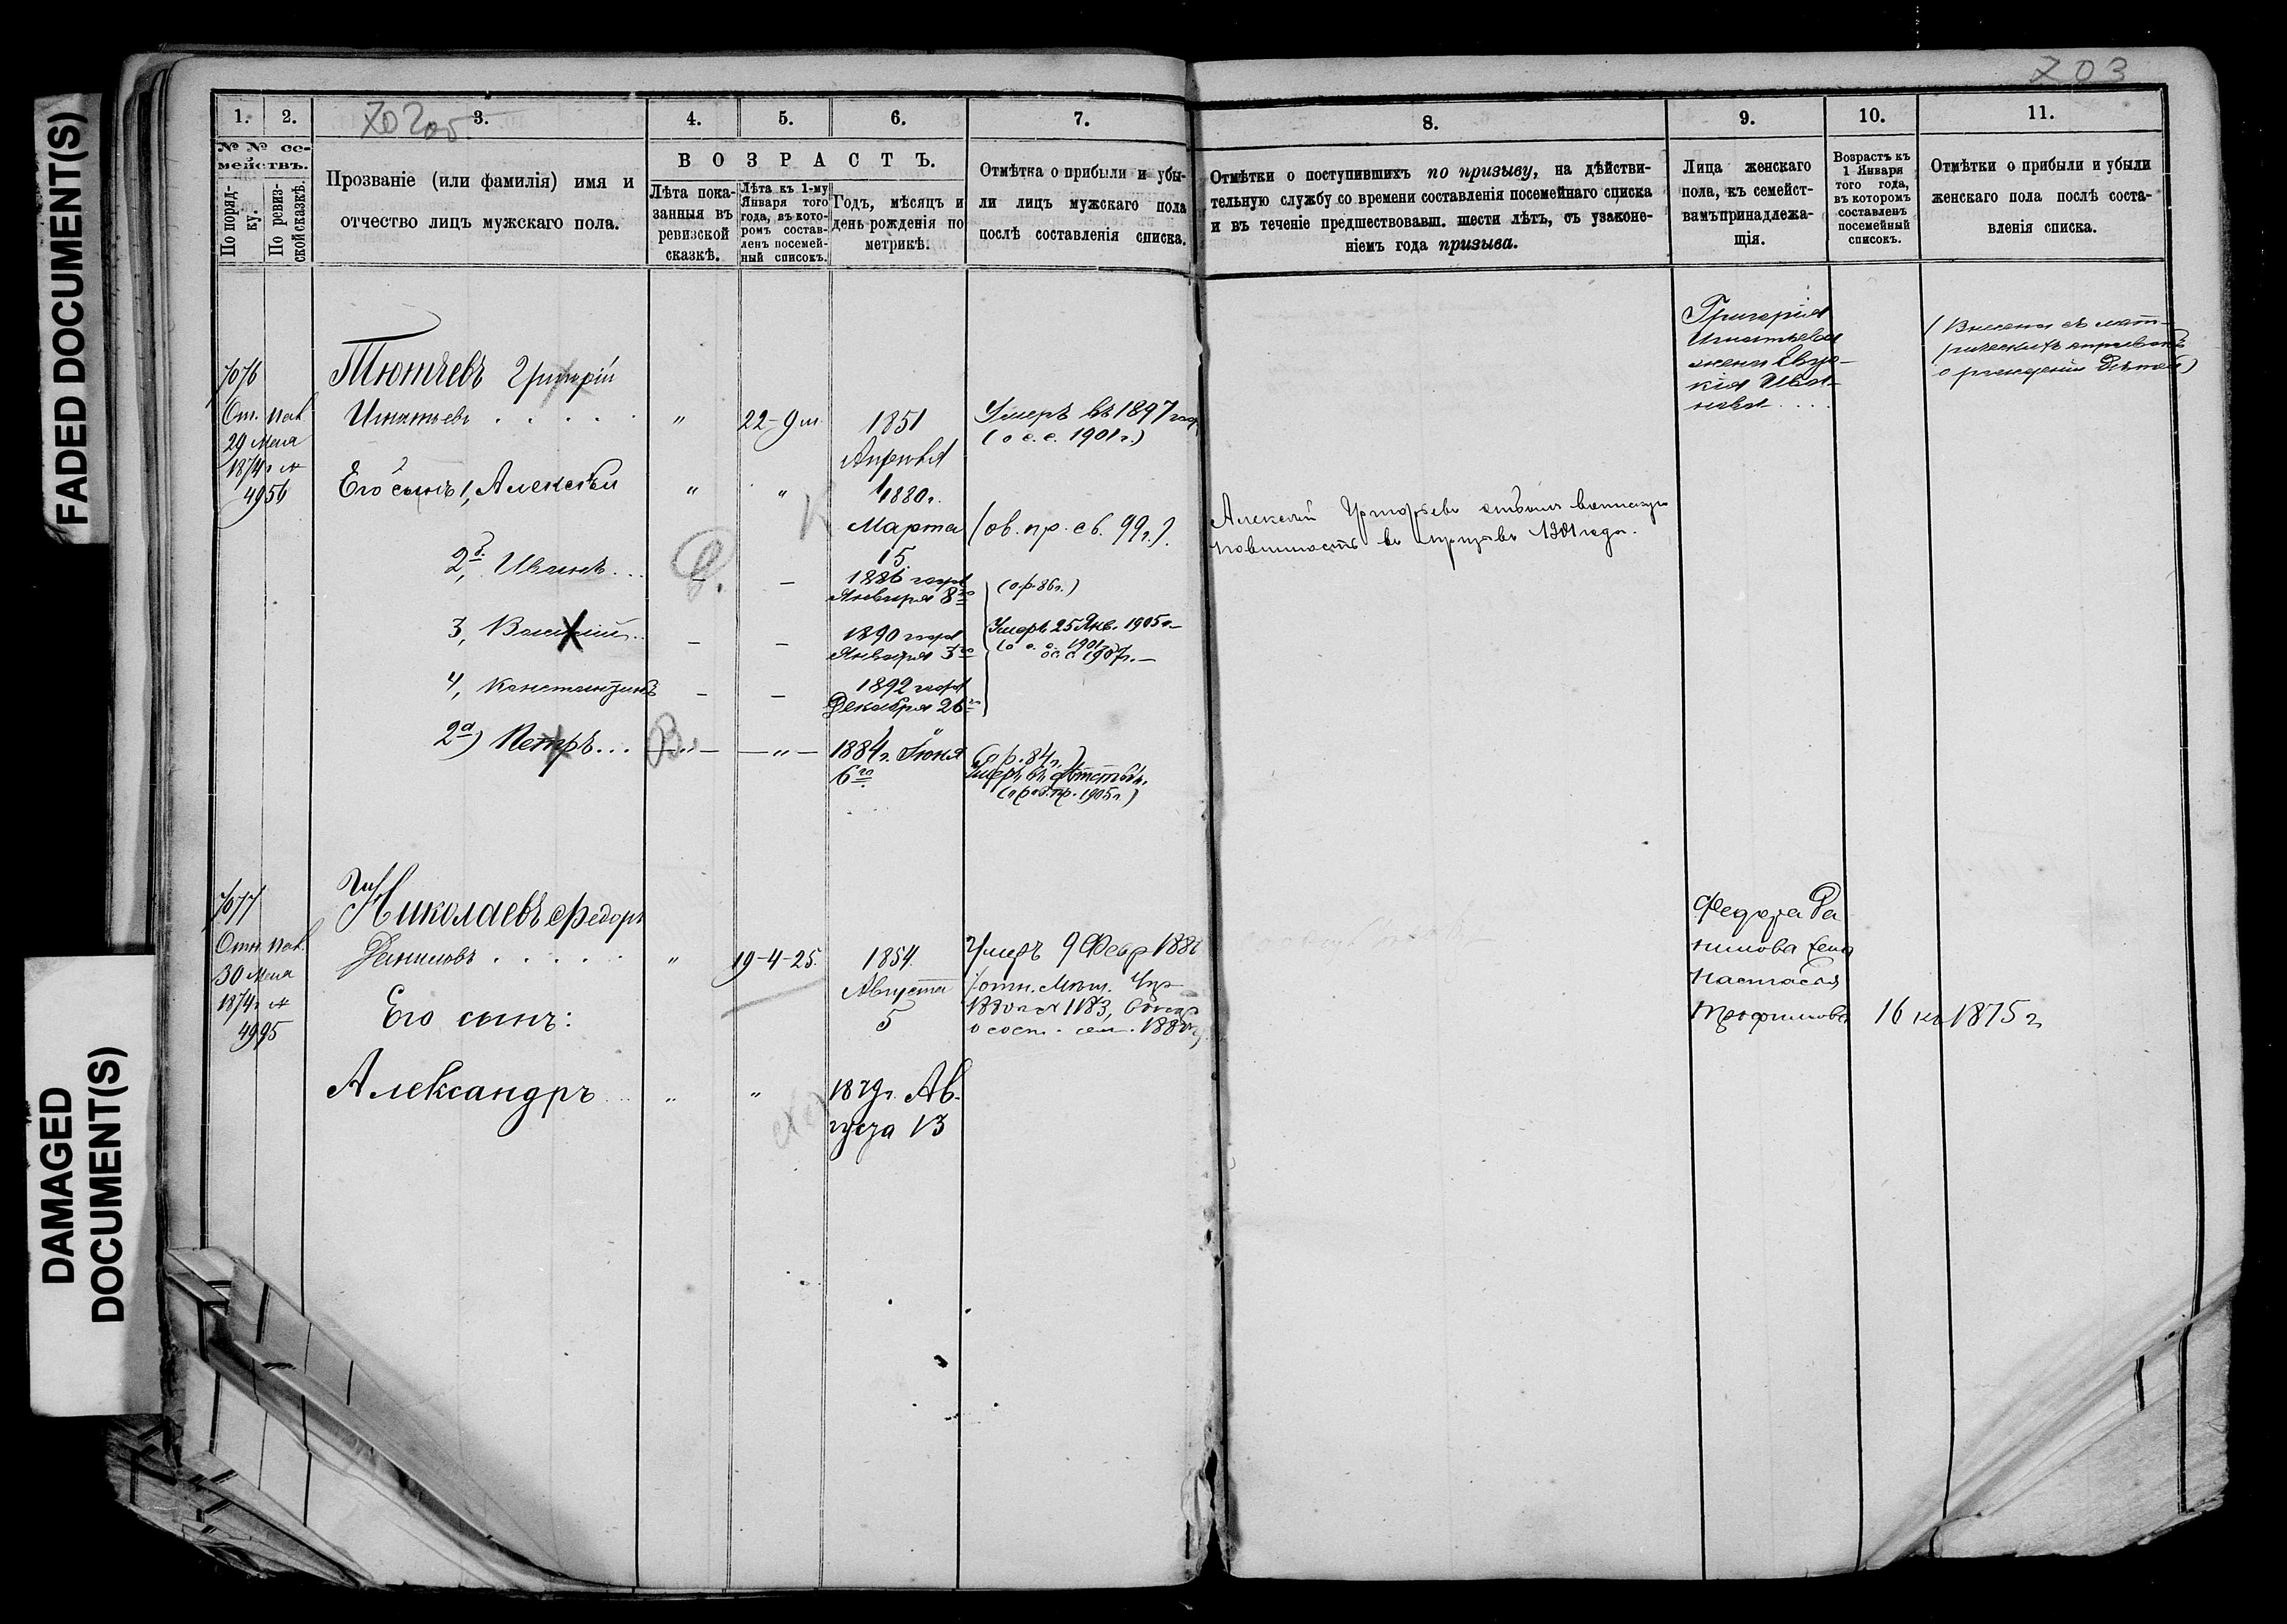 FADED DOCUMENT(S)
DAMAGED
DOCUMENT(S)
702 об
703
1.
2.
3.
4.
5.
6.
7.
№ № се-
мействъ.
По поряд-
ку.
По ревиз-
ской сказкѣ.
Прозваніе (или фамилія) имя и
отчество лицъ мужскаго пола.
ВОЗРАСТЪ.
Лѣта пока-
занныя въ
ревизской
сказкѣ.
Лѣта къ 1-му
Января того
года, въ кото-
ромъ состав-
ленъ посемей-
ный списокъ.
Годъ, мѣсяцъ и
день рожденія по
метрикѣ.
Отмѣтка о прибыли и убы-
ли лицъ мужскаго пола
послѣ составленія списка.
8.
9.
10.
11.
Отмѣтки о поступившихъ по призыву, на дѣйстви-
тельную службу со времени составленія посемейнаго списка
и въ теченіе предшествовавш. шести лѣтъ, съ узаконе-
ніемъ года призыва.
Лица женскаго
пола, къ семейст-
вамъ принадлежа-
щія.
Возрастъ къ
1 Января
того года,
въ которомъ
составленъ
посемейный
списокъ.
Отмѣтки о прибыли и убыли
женскаго пола послѣ соста-
вленія списка.
7076
29 Мая
1874 г №
4956
Тютчевъ Григорій
Игнатьевъ . . . . .
" 22-9 м. 1851
Апрѣля
Умеръ въ 1897 году
(о с. с. 1901 г.)
Его сынъ 1, Алексѣй
" " 1880 г.
Марта
15
(ов. пр. св. 99 г.)
Алексѣй Григорьевъ отбылъ воинскую
повинность въ призывъ 1901 года.
2б, Иванъ . . .
1886 года
Января 8го
(о р. 86 г.)
3, Василій . .
1890 года
Января 3го
Умеръ 25 Янв. 1905 г.
4, Константинъ
1892 года
Декабря 26
2а) Петръ . . .
1884 г. Іюня
6го
(о р. 84 г.)
Умеръ въ дѣтствѣ.
Григорія
Игнатьева
жена Евдо-
кія Ива-
нова . . . .
о рожденіи дѣтей)
7077
30 Мая
1874 г №
4995
Николаевъ Федоръ
Даниловъ . . . . .
" 19-4-25. 1854
Августа
5
Умеръ 9 Февр 188
о сост. сем. 188
Его сынъ:
Александръ . . .
" " 1879 г. Ав-
густа 13
Федора Да
нилова жена
Настасья
Трофимова 16 къ 1875 г.